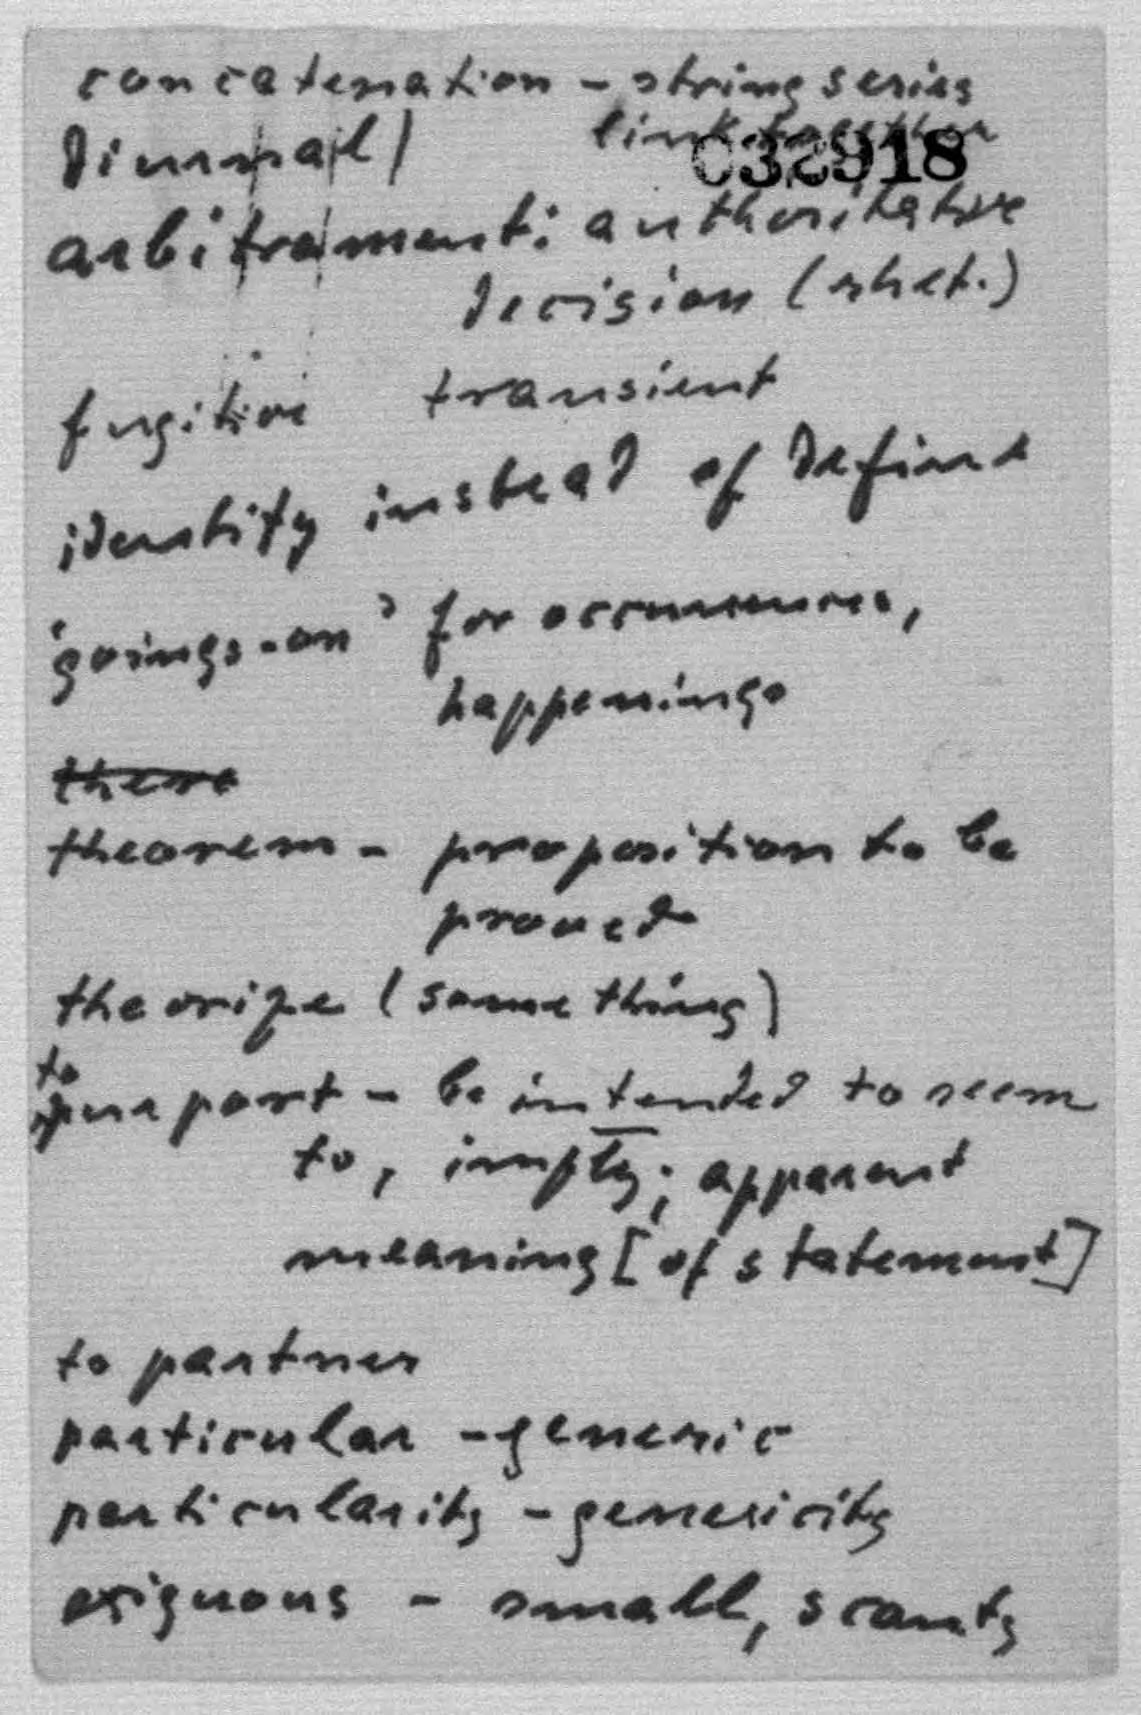 concatenation - string series
link together
C32918
diurnal)
arbitrament: authoritative
decision (rhet.)
fugitive transient
identity instead of define
'goings-on' for occurrences,
happenings
there
theorem - proposition to be
proved
theorize (same thing)
to
purport - be intended to seem
to, imply; apparent
meaning [of statement]
to partner
particular - generic
particularity - genericity
exiguous - small, scanty